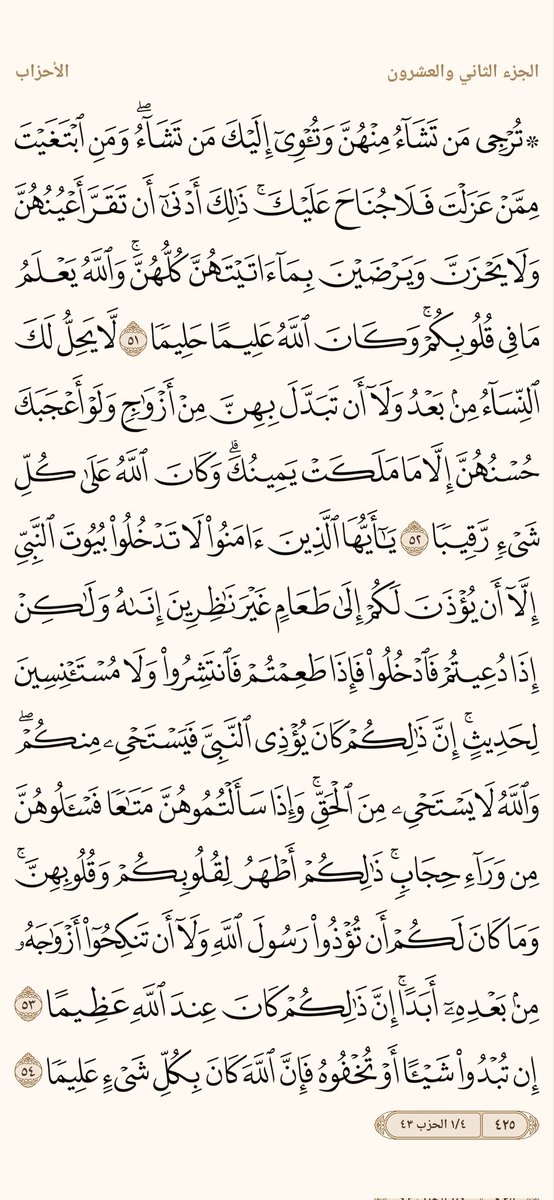 الجزء الثاني والعشرون
الأحزاب
۞ تُرۡجِي مَن تَشَآءُ مِنۡهُنَّ وَتُـٔۡوِيٓ إِلَيۡكَ مَن تَشَآءُۖ وَمَنِ ٱبۡتَغَيۡتَ
مِمَّنۡ عَزَلۡتَ فَلَا جُنَاحَ عَلَيۡكَۚ ذَٰلِكَ أَدۡنَىٰٓ أَن تَقَرَّ أَعۡيُنُهُنَّ
وَلَا يَحۡزَنَّ وَيَرۡضَيۡنَ بِمَآ ءَاتَيۡتَهُنَّ كُلُّهُنَّۚ وَٱللَّهُ يَعۡلَمُ
مَا فِي قُلُوبِكُمۡۚ وَكَانَ ٱللَّهُ عَلِيمًا حَلِيمٗا ٥١ لَّا يَحِلُّ لَكَ
ٱلنِّسَآءُ مِنۢ بَعۡدُ وَلَآ أَن تَبَدَّلَ بِهِنَّ مِنۡ أَزۡوَٰجٖ وَلَوۡ أَعۡجَبَكَ
حُسۡنُهُنَّ إِلَّا مَا مَلَكَتۡ يَمِينُكَۗ وَكَانَ ٱللَّهُ عَلَىٰ كُلِّ
شَيۡءٖ رَّقِيبٗا ٥٢ يَـٰٓأَيُّهَا ٱلَّذِينَ ءَامَنُواْ لَا تَدۡخُلُواْ بُيُوتَ ٱلنَّبِيِّ
إِلَّآ أَن يُؤۡذَنَ لَكُمۡ إِلَىٰ طَعَامٍ غَيۡرَ نَٰظِرِينَ إِنَىٰهُ وَلَٰكِنۡ
إِذَا دُعِيتُمۡ فَٱدۡخُلُواْ فَإِذَا طَعِمۡتُمۡ فَٱنتَشِرُواْ وَلَا مُسۡتَـٔۡنِسِينَ
لِحَدِيثٍۚ إِنَّ ذَٰلِكُمۡ كَانَ يُؤۡذِي ٱلنَّبِيَّ فَيَسۡتَحۡيِۦ مِنكُمۡۖ
وَٱللَّهُ لَا يَسۡتَحۡيِۦ مِنَ ٱلۡحَقِّۚ وَإِذَا سَأَلۡتُمُوهُنَّ مَتَٰعٗا فَسۡـَٔلُوهُنَّ
مِن وَرَآءِ حِجَابٖۚ ذَٰلِكُمۡ أَطۡهَرُ لِقُلُوبِكُمۡ وَقُلُوبِهِنَّۚ
وَمَا كَانَ لَكُمۡ أَن تُؤۡذُواْ رَسُولَ ٱللَّهِ وَلَآ أَن تَنكِحُوٓاْ أَزۡوَٰجَهُۥ
مِنۢ بَعۡدِهِۦٓ أَبَدًاۚ إِنَّ ذَٰلِكُمۡ كَانَ عِندَ ٱللَّهِ عَظِيمًا ٥٣
إِن تُبۡدُواْ شَيۡـًٔا أَوۡ تُخۡفُوهُ فَإِنَّ ٱللَّهَ كَانَ بِكُلِّ شَيۡءٍ عَلِيمٗا ٥٤
٤٢٥
١/٤ الحزب ٤٣